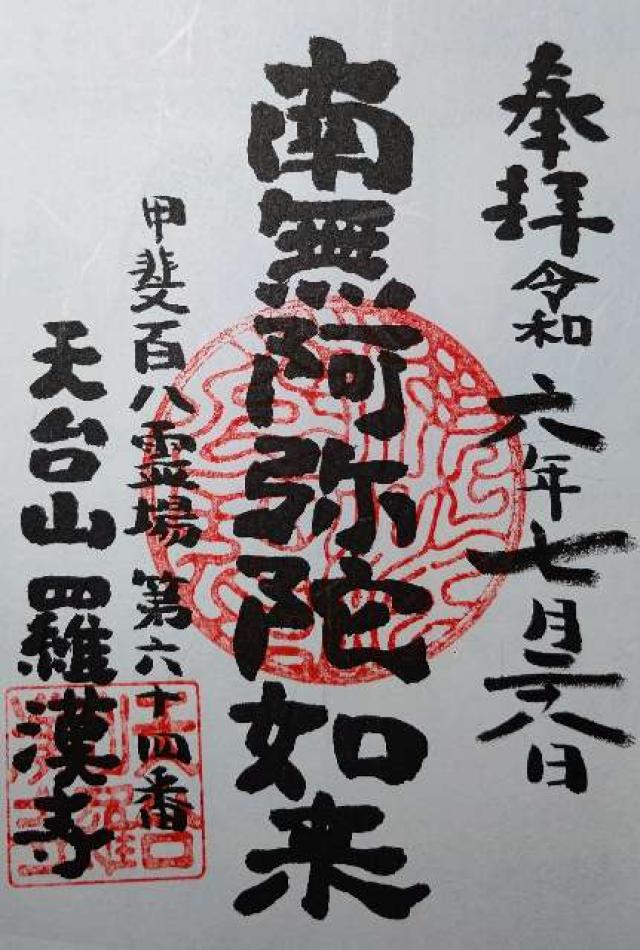 奉拝 令和六年七月二十八日
南無阿弥陀如来
甲斐百八霊場 第六十四番
天台山 羅漢寺